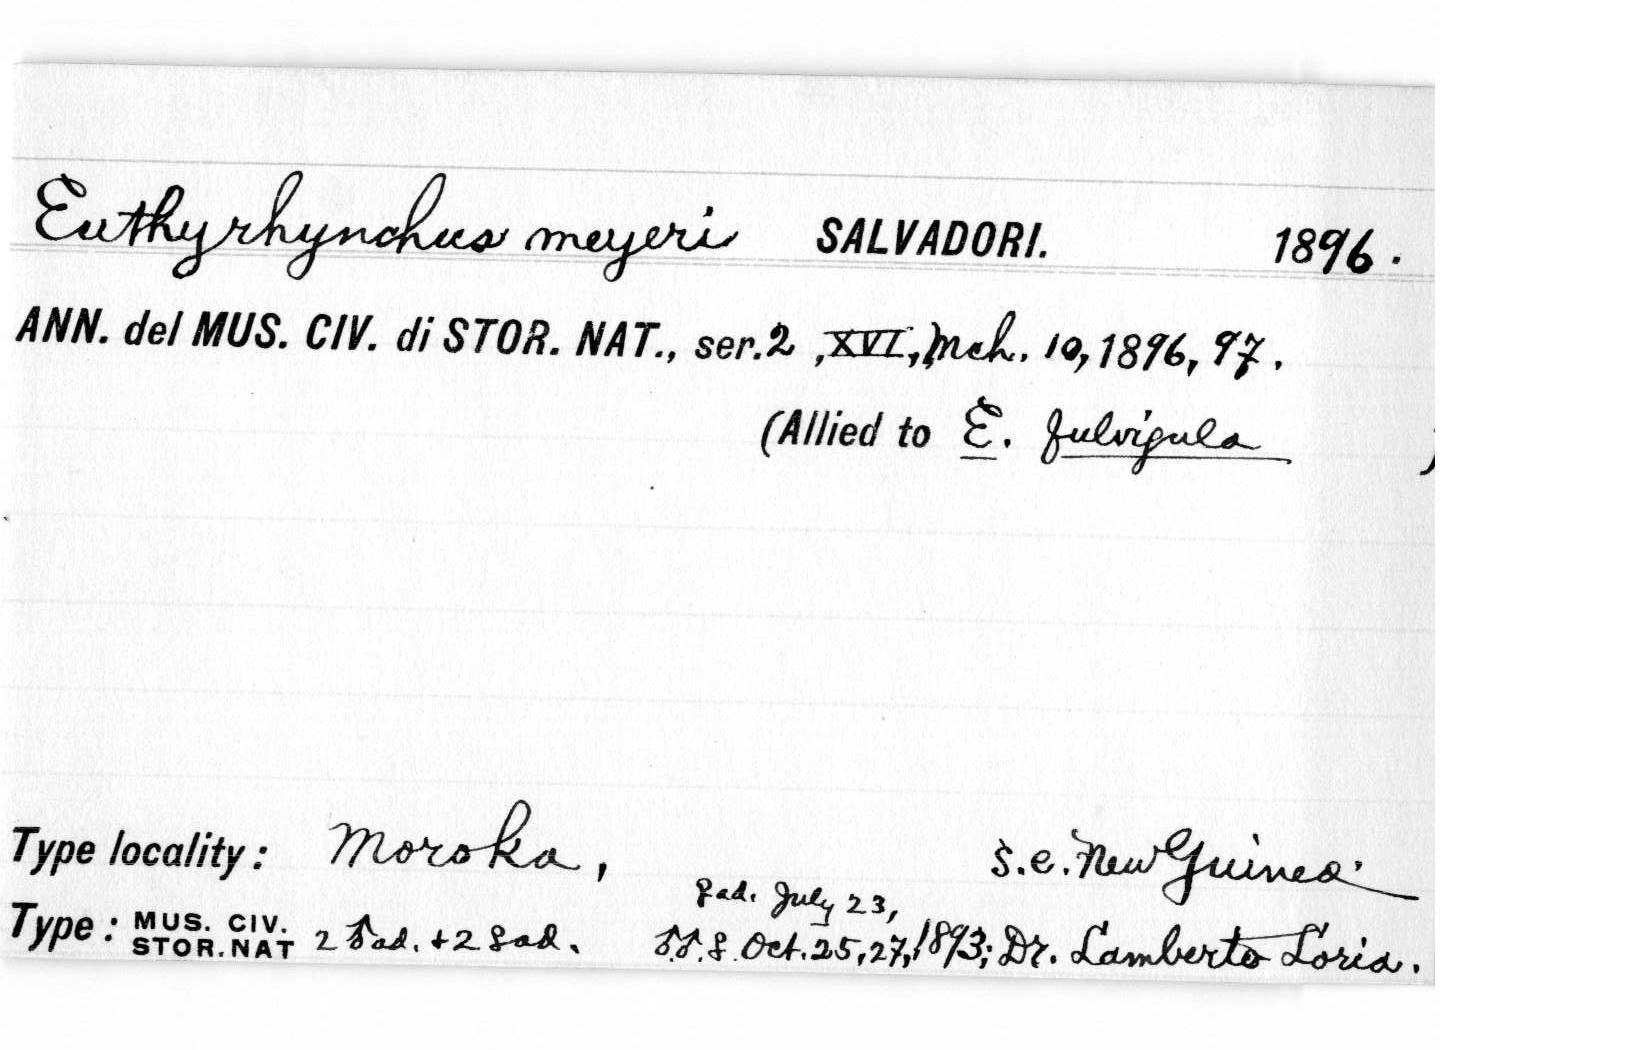 Euthyrhynchus meyeri SALVADORI. 1896.
ANN. del MUS. CIV. di STOR. NAT., ser.2, XVI, Mch. 10, 1896, 97.
(Allied to E. fulvigula )
Type locality: Moroka, S.e. New Guinea.
♀ad. July 23,
Type: MUS. CIV. STOR. NAT 2 ♂ad. + 2 ♀ad. ♂.♂.♀. Oct. 25, 27, 1893; Dr. Lamberto Loria.